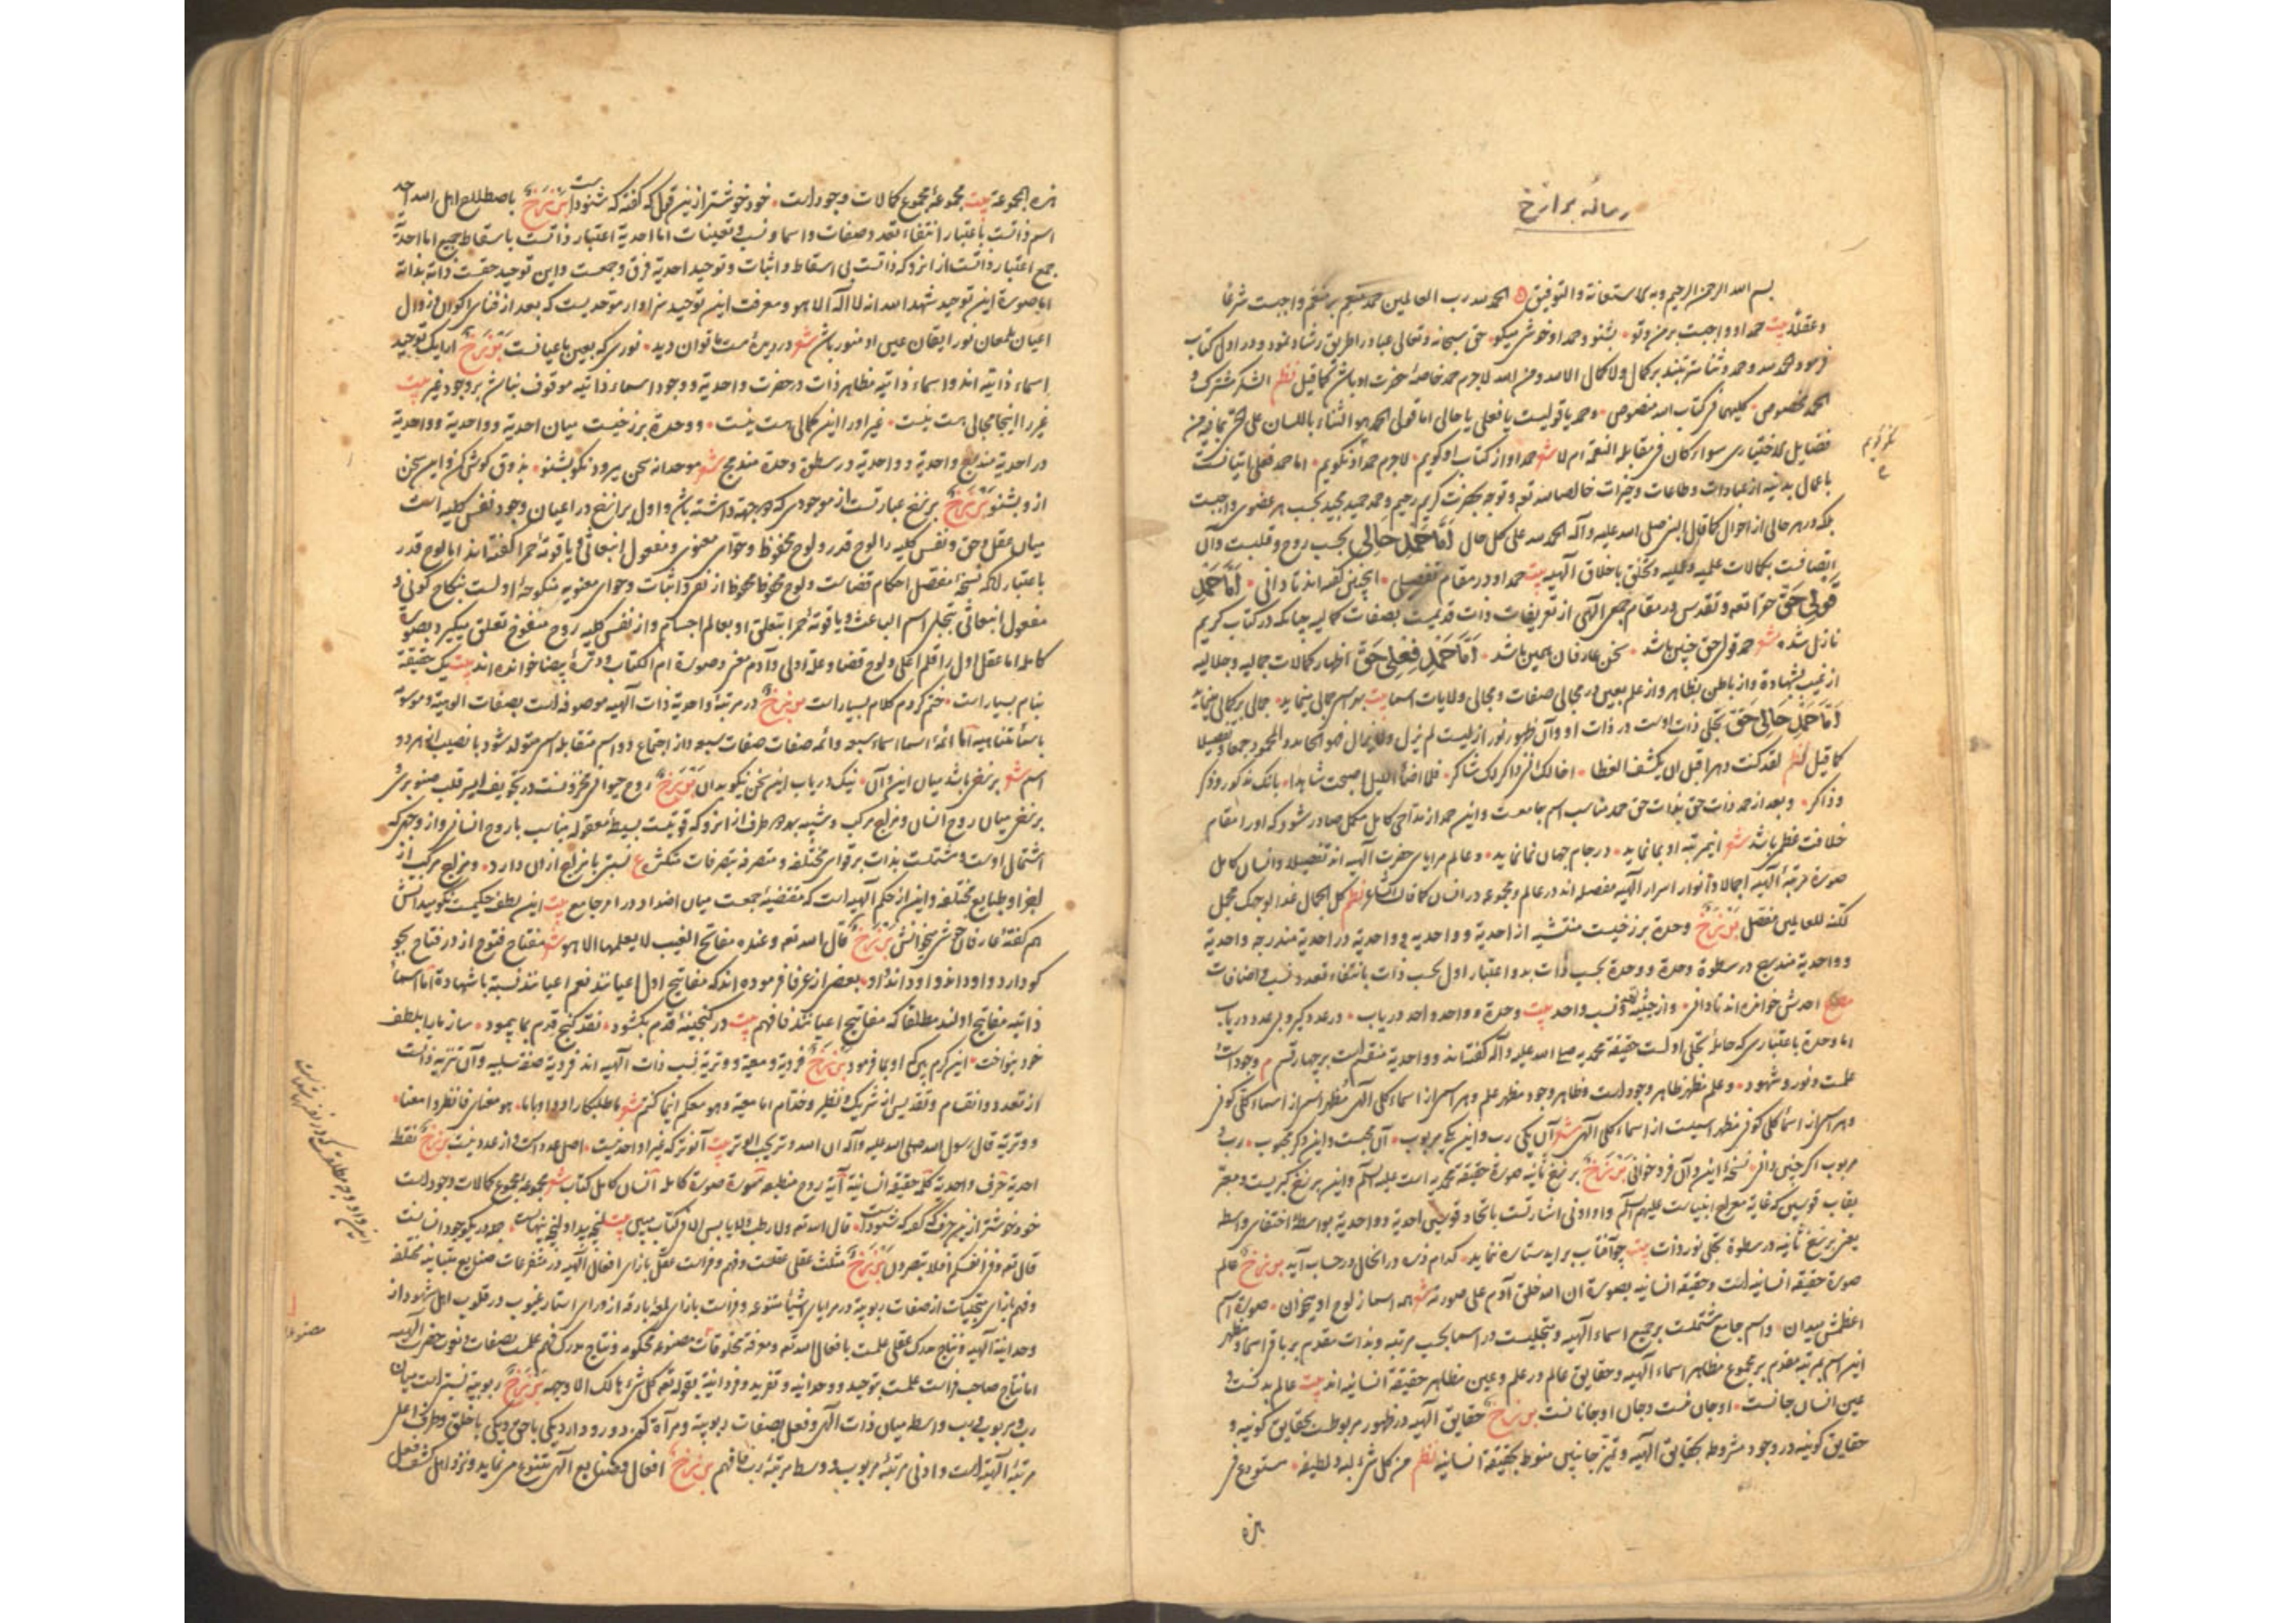 رساله برازخ
بسم الله الرحمن الرحیم وبه الاستعانة والتوفیق الحمد لله رب العالمین حمد منعم بر منعم واجبست شرعا
وعقلا بیت حمد او واجبست بر من وتو بشنو وحمد او خوش میکو حق سبحانه وتعالی عباد را طریق رشاد نمود ودر اول کتاب
فرمود الحمد لله وحمد وثنا مترتبند بر کمال ولا کمال الا لله ومن الله لاجرم حمد خاصهٔ حضرت او باشد کما قیل نظم الشکر مشترک و
الحمد مخصوص کلیهما فی کتاب الله منصوص وحمد یا قولیست یا فعلی یا حالی اما قولی الحمد هو الثناء باللسان علی
سواء کان فی مقابلة النعمة ام لا شعر حمد او از کتاب او کویم لاجرم حمد او نکو کویم اما حمد فعلی اتیانست
باعمال بدنیه از عبادات وطاعات وخیرات خالصا لله تعه وتوجه بحضرت کریم رحیم وحمد حمید مجید بحسب هر عضوی واجبست
بلکه در هر حالی از احوال کما قال النبی صلی الله علیه وآله الحمد لله علی کل حال اما حمد حالی بحسب روح وقلبست وآن
اتصافست بکمالات علمیه وعملیه وتخلق باخلاق الهیه بیت حمد او در مقام تفصیلی اینچنین گفته اند تا دانی اما حمد
قولی حق حق تعه وتقدس در مقام جمعی الهی از تعریفات ذات قدیمست بصفات کمالیه چنانکه در کتاب کریم
نازل شده شعر حمد قولی حق چنین باشد سخن عارفان همین باشد اما حمد فعلی حق اظهار کمالات جمالیه وجلالیه
از غیب بشهادة واز باطن بظاهر واز علم بعین در مجالی صفات ومجالی ولایات اسما بیت
اما حمد حالی حق تجلی ذات اوست در ذات او وآن ظهور نور ازلیست لم یزل ولا یزال فهو الحامد والمحمود جمعا وتفصیلا
کما قیل نظم لقد کنت دهرا قبل ان یکشف الغطا اخالک انی ذاکر لک شاکر فلما اضاء اللیل اصبحت شاهدا بانک مذکور وذکر
وذاکر وبعد از حمد ذات حق بذات حق حمد مناسب اسم جامعست واین حمد از مداحی کامل مکمل صادر شود که او را مقام
خلافت عظمی باشد شعر اینمرتبه او بما نماید در جام جهان نما نماید وعالم مرایای حضرت الهیه اند تفصیلا وانسان کامل
صورة مرتبهٔ الهیه اجمالا وانوار اسرار الهیه مفصله اند در عالم ومجموعه در انسان کما قال الشاعر نظم کل الجمال غدا لوجهک مجمل
لکنه للعالمین مفصل برزخ وحدة برزخیست منتشیه از احدیة وواحدیه وواحدیة در احدیة مندرجه واحدیة
وواحدیة مندمج در سطوة وحدة ووحدة بحسب ذات بدو اعتبار اول بحسب ذات بانتفاء تعدد ونسب واضافات
احدش خوانده اند تا دانی واز حیثیة نسب واحد بیت وحدة وواحد واحد دریاب در عدد کیر وبی عدد دریاب
اما وحدة باعتباری که حامل تجلی اولست حقیقة محمدیه صلی الله علیه وآله کفته اند وواحدیة منقسم است بر چهار قسم وجود است
علمست ونور وشهود وعلم مظهر ظاهر وجود است وظاهر وجود مظهر علم وهر اسمی از اسماء کلی الهی مظهر اسمی از اسماء کلی کونی
وهر اسمی از اسماء کلی کونی مظهر اسمیست از اسماء کلی الهی شعر آن یکی رب واین یکی مربوب آن محبست واین دکر محبوب رب و
مربوب اکر چنین دانی نسخهٔ این وآن فرو خوانی برزخ برزخ ثانیه صورة حقیقة محمدیه است علیه السلم واین برزخ کبریست ومعبر
بقاب قوسین که غایة معراج انبیاست علیهم السلم واو ادنی اشارتست باتحاد قوسین احدیة وواحدیة بواسطهٔ اختفای واسطه
یعنی برزخ ثانیه در سطوة تجلی نور ذات بیت چو آفتاب برآید ستاره ننماید کدام ذره در انحال در حساب آید برزخ عالم
صورة حقیقة انسانیه است وحقیقة انسانیه بصورة ان الله خلق آدم علی صورته شعر همه اسما ز لوح او میخوان صورة اسم
اعظمش میدان واسم جامع مشتملست بر جمیع اسماء الهیه ومتجلیست در اسما بحسب مرتبه وبذات مقدم بر باقی اسما ومظهر
این اسم بمرتبه مقدم بر مجموع مظاهر اسماء الهیه وحقایق عالم در علم وعین مظاهر حقیقة انسانیه اند بیت عالم بدنست و
عین انسان جانست او جان منست وجان او جانانست برزخ حقایق الهیه در ظهور مربوطست بحقایق کونیه و
حقایق کونیه در وجود مشروط بحقایق الهیه وتمیز جانبین منوط بحقیقة انسانیه نظم من کل شیء لبه ولطیفه مستودع فی
هذه
هذه المجموعة بیت مجموعهٔ مجموع کمالات وجود است خود خوشتر ازین قول که کفته که شنود است برزخ باصطلاح اهل الله احد
اسم ذاتست باعتبار انتفاء تعدد وصفات واسما ونسب وتعینات اما احدیة اعتبار ذاتست باسقاط جمیع اما احدیة
جمع اعتبار ذاتست از انرو که ذاتست بی اسقاط واثبات وتوحید احدیة فرق وجمعست واین توحید حقست ذاته بذاته
اما صورة این توحید شهد الله انه لا اله الا هو ومعرفت این توحید سزاوار موحدیست که بعد از فنای اکوان وزوال
اعیان بلمعان نور ایقان عین او منور باشد شعر در دیدهٔ مست ما توان دید نوری که بعین ما عیانست برزخ ارایک توحید
اسماء ذاتیه اند واسماء ذاتیه مظاهر ذات در حضرت واحدیة ووجود اسماء ذاتیه موقوف نباشد بر وجود غیر بیت
غیر را اینجا مجالی هست نیست غیر او را این کمالی هست نیست ووحدة برزخیست میان احدیة وواحدیة وواحدیة
در احدیة مندمج واحدیة وواحدیة در سطوة وحدة مندمج شعر موحدانه سخن میرود نکو بشنو بذوق کوش کن واین سخن
از و بشنو برزخ برزخ عبارتست از موجودی که دو جهة داشته باشد واول برازخ در اعیان وجود نفس کلیه است
میان عقل وحق ونفس کلیه را لوح قدر ولوح محفوظ وحوای معنوی ومفعول انبعاثی ویاقوتهٔ حمرا کفته اند اما لوح قدر
باعتبار آنکه نسخهٔ مفصل احکام قضاست ولوح محفوظ محفوظ از نفی واثبات وحوای معنویه منکوحهٔ اولست بنکاح کونی و
مفعول انبعاثی بتجلی اسم الباعث ویاقوتهٔ حمرا بتعلق او بعالم اجسام واز نفس کلیه روح منفوخ تعلق میکیرد بصورة
کامله اما عقل اول را قلم اعلی ولوح قضا وعقل اولی وآدم معنی وصورة ام الکتاب ودرهٔ بیضا خوانده اند بیت یک حقیقة
بنام بسیار است ختم کردم کلام بسیار است برزخ در مرتبهٔ واحدیة ذات الهیه موصوفه است بصفات الوهیه وموسوم
باسماء متناهیه اما ائمهٔ اسما اسماء سبعه وائمه صفات صفات سبعه واز اجتماع دو اسم متقابل اسمی متولد شود با نصیب از هر دو
اسم شعر برزخی باشد میان این وآن نیک دریاب این سخن نیکو بدان برزخ روح حیوانی مخزونست در تجویف ایسر قلب صنوبری و
برزخی میان روح انسان ومزاج مرکب وشبیه بهر دو طرف از انرو که قوتیست بسیط معقوله مناسب با روح انسانی واز وجهی که
اشتمال اوست ومشتملست بذات بر قوای مختلفه ومتصرفه بتصرفات متکثره ع نسبتی با مزاج از ان دارد ومزاج مرکب از
اجزا وطبایع مختلفه واین از حکم الهیه است که مقتضیهٔ جمعیت میان اضداد در امر جامع بیت این لطف حکیمست نکو میدانش
هم کفتهٔ عارفان خوش میخوانش برزخ قال الله تعه وعنده مفاتح الغیب لا یعلمها الا هو شعر مفتاح فتوح از در فتاح بجو
کو دارد واو داند واو داند او بعضی از عرفا فرموده اند که مفاتیح اول اعیانند نعم اعیانند نسبة با شهادة اما اسماء
ذاتیه مفاتیح اولند مطلقا که مفاتیح اعیانند فافهم بیت در کنجینهٔ قدم بکشود نقد کنج قدم بما پیمود ساز ما را بلطف
خود بنواخت این کرم بین که او بما فرمود برزخ فردیة ومعیة ووتریة نسب ذات الهیه اند فردیة صفة سلبیه وآن تنزیه ذاتست
از تعدد وانقسام وتقدیس از شریک ونظیر وخدام اما معیة وهو معکم اینما کنتم شعر ما طلبکار او واو با ما هو معنای فانظروا معنا
ووتریة قال رسول الله صلی الله علیه وآله ان الله وتر یحب الوتر بیت آنوتر که غیر او احد نیست اصل عدد است واز عدد نیست برزخ نقطهٔ
احدیة حرف واحدیة کلمه حقیقة انسانیة آیة روح منطبعه سورة صورة کامله انسان کامل کتاب شعر مجموعهٔ مجموع کمالات وجود است
خود خوشتر ازین حرف که کفته که شنود است قال الله تعه ولا رطب ولا یابس الا فی کتاب مبین بیت
قال تعه وفی انفسکم افلا تبصرون برزخ مثلث عقلی عقلست وفهم وفراست عقل بازای افعال الهیه در متفرعات صنایع متباینه مختلفه
وفهم بازای تجلیات از صفات ربوبیة در مرایای اشیا متنوعه وفراست بازای لمعهٔ بارقه از ورای استار غیوب در قلوب اهل شهود از
وحدانیة الهیه ونتاج مدرک عقلی علمست بافعال الله تعه ومعرفة مخلوقات مصنوعه محکومه ونتاج مدرک فهم علمست بصفات ونعوت حضرت الهیه
اما نتاج صاحب فراست علمست بتوحید ووحدانیه وتفرید وفردانیة بقوله تعه کل شیء هالک الا وجهه برزخ ربوبیة نسبتی است میان
رب ومربوب ورب واسطه میان ذات الهی وفعل بصفات ربوبیة ومرآة که دو رو دارد یکی باحق ویکی باخلق وطرف اعلی
مرتبهٔ الهیه است وادنی مرتبهٔ مربوب ووسط مرتبهٔ رب فافهم برزخ افعال وصنایع الهی متنوع می نماید ونزد اهل کشف فعل